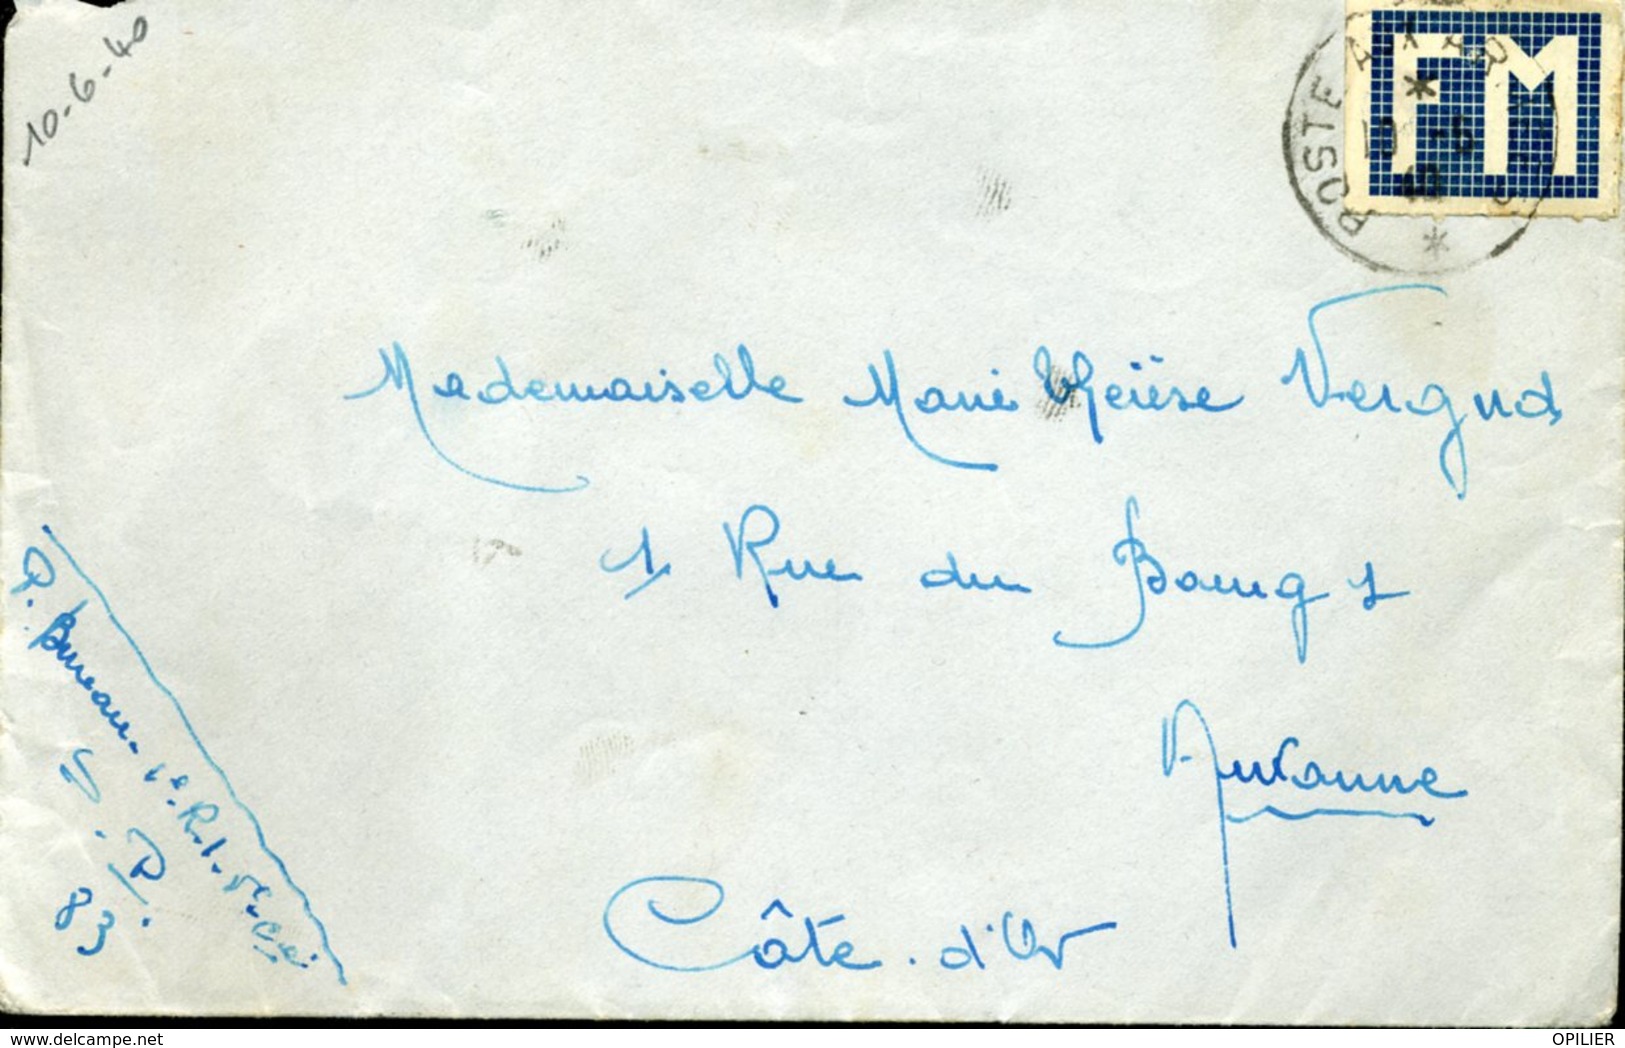 10-6-40
FM
POSTE AUX ARMEES
10 -6
40
Mademoiselle Marie Thérèse Vergnot
1 Rue du Bourg 1
Auxonne
Côte. d'Or
P. Bureau. 1e. R.I. 5e. Cie.
S.P.
83
delcampe.net
OPILIER